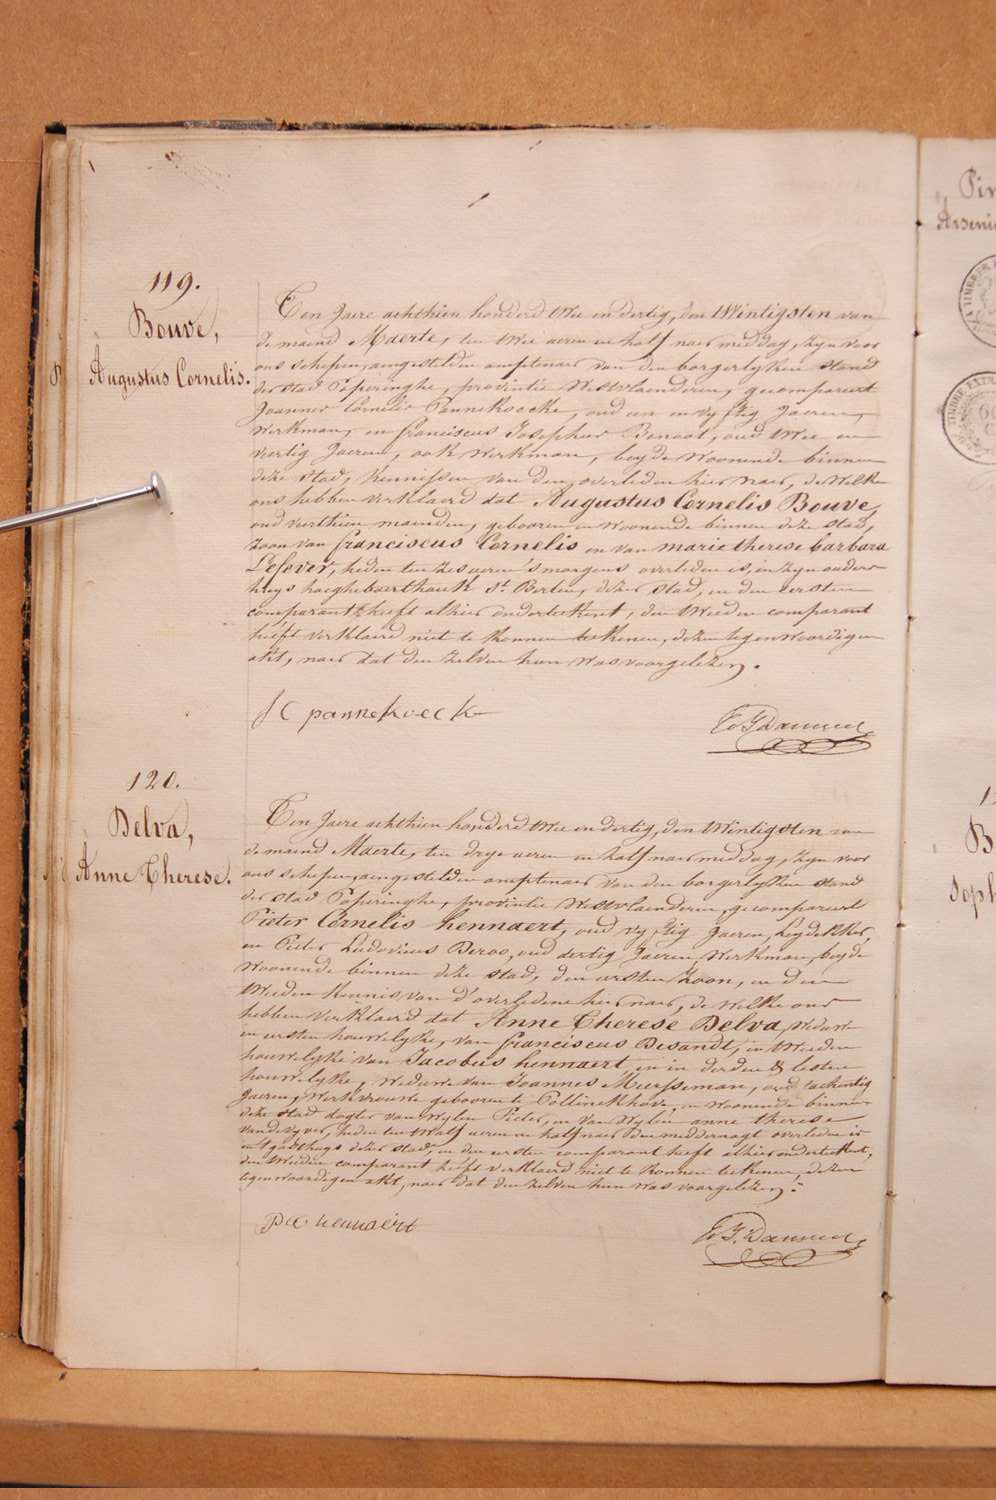 119.
Bouve,
Augustus Cornelis.
Ten Jaere achthien honderd twee en dertig, den twintigsten van
de maend Maerte, ten twee ueren en half naer middag, zyn voor
ons schepen, aengestelden amptenaer van den borgerlyken stand
der stad Poperinghe, provintie Westvlaenderen, gecompareert
Joannes Cornelis Pannekoecke, oud een en vyftig Jaeren,
Werkman, en franciscus Josephus Benoot, oud twee en
veertig Jaeren, ook werkman, beyde woonende binnen
deze stad, kennissen van den overleden hier naer, de welke
ons hebben verklaerd dat Augustus Cornelis Bouve,
oud veerthien maenden, gebooren en woonende binnen deze stad,
zoon van franciscus Cornelis en van marie therese barbara
Lefever, heden ten zes ueren 's morgens overleden is, in zyn ouders
huys haeghebaerthoek St. Bertin, dezer stad, en den eersten
comparant heeft alhier onderteekent, den tweeden comparant
heeft verklaerd niet te konnen teekenen, dezen tegenwoordigen
akt, naer dat den zelven hun was voorgelezen.
J C pannekoecke
120.
Delva,
Anne Therese.
Ten Jaere achthien honderd twee en dertig, den twintigsten van
de maend Maerte, ten drye ueren en half naer middag, zyn voor
ons schepen, aengestelden amptenaer van den borgerlyken stand
der stad Poperinghe, provintie Westvlaenderen, gecompareert
Pieter Cornelis hennaert, oud vyftig Jaeren, Leydekker,
en Pieter Ludovicus Deroo, oud dertig Jaeren, Werkman, beyde
woonende binnen deze stad, den eersten zoon, en den
tweeden kennis van d'overledene hier naer, de welke ons
hebben verklaerd dat Anne Therese Delva, weduwe
in eersten houwelyke, van franciscus Desandt, in tweeden
houwelyke van Jacobus hennaert, en in derden & lesten
houwelyke, weduwe van Joannes Meersseman, oud tachentig
Jaeren, Werkvrouwe gebooren te Pollinckhove, en woonende binnen
deze stad dogter van wylen Pieter, en van wylen anne therese
vandevyver, heden ten twalf ueren en half naer den middernagt overleden is
in't gasthuys dezer stad, en den eersten comparant heeft alhier onderteekent,
den tweeden comparant heeft verklaerd niet te konnen teekenen, dezen
tegenwoordigen akt, naer dat den zelven hun was voorgelezen.
p c hennaert
Pin
Arseni
B
Soph